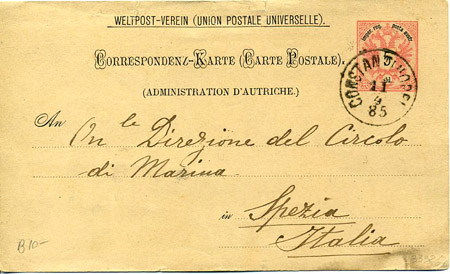 WELTPOST-VEREIN (UNION POSTALE UNIVERSELLE).
CORRESPONDENZ-KARTE (CARTE POSTALE).
(ADMINISTRATION D'AUTRICHE.)
CONSTANTINOPEL
11
9
85
An On le Direzione del Circolo
di Marina
in Spezia
Italia
B10-